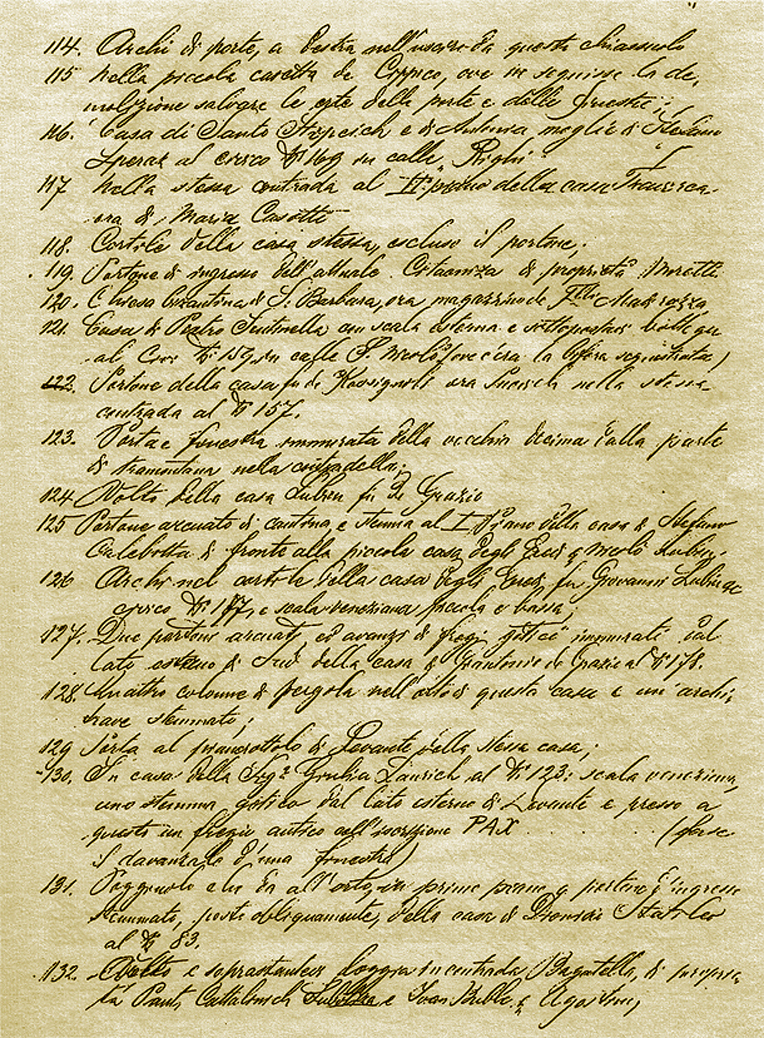 114. Archi di porte, a destra nell'uscire da questo chiassuolo
115 Nella piccola casetta de Cippico, ove ne seguisse la de,
molizione salvare le erte delle porte e delle finestre;
116. Casa di Santo Stipcich e di Antonia moglie di Stefano
Sperac al civico No 169, in calle „Righi"
117 Nella stessa contrada al IIo piano della casa
ora di Maria Casotti
118. Cortile della casa stessa, escluso il portone;
119. Portone di ingresso dell'attuale Citaonizza di proprietà Moretti
120. Chiesa bizantina di S. Barbara, ora magazzino de Flli Madirazza
121. Casa di Pietro Sentinella con scala esterna e sottoposta bottega
al Civo No 159, in calle S. Nicolò (ove c'era la bifora sequestrata)
122. Portone della casa fu de Rossignoli ora nella stessa
contrada al No 157.
123. Porta e finestra immurata della vecchia decima dalla parte
di tramontana nella contradella;
124 Volto della casa Lubin fu De Grazio
125 Portone arcuato di cantina, e stemma al I Piano della casa di Stefano
Calebotta di fronte alla piccola casa degli Eredi q Nicolò Lubin.
126 Archi nel cortile della casa degli Eredi fu Giovanni Lubin al
civico No 177, e scala veneziana piccola e bassa;
127. Due portoni arcuati, ed avanzi di fregi gotici immurati dal
lato esterno di Sud della casa di Grantonio de Grazio al No 178.
128. Quattro colonne di pergola nell'orto di questa casa e un archi,
trave stemmato;
129 Porta al pianerottolo di Levante della stessa casa;
130. In casa della Siga Giulia Lanrich al No 123: scala veneziana,
uno stemma gotico dal lato esterno di Levante e presso a
questo un fregio antico coll'iscrizione PAX . . . . . (forse
il davanzale d'una finestra)
131. Poggiuolo che dà all'orto, in primo piano e portone d'ingresso
stemmato, posto obliquamente, della casa di Dionisio Statileo
al No 83.
132. Volto e soprastante loggia in contrada Bagatella, di proprie,
tà Cattalinich e Ivan Buble q Agostino,